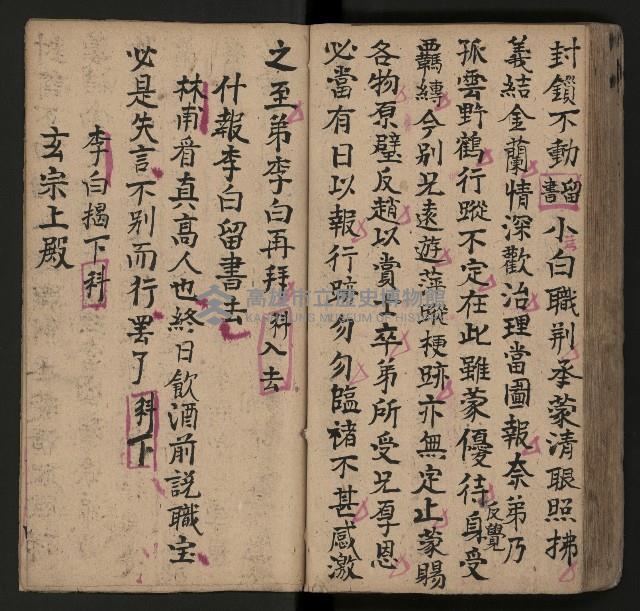 封鎖不動留書小白職荆丞蒙清眼照拂
義結金蘭情深歡洽理當圖報奈弟乃
孤雲野鶴行蹤不定在此雖蒙優待反覺身受
覊縛今别兄遠遊萍蹤梗跡亦無定止蒙賜
各物原璧反趙以賞卒弟所受兄厚恩
必當有日以報行踪匆匆臨禇不甚感激
之至弟李白再拜科入去
什報李白留書去
林甫看真高人也終日飲酒前説職宝
必是失言不别而行罷了科下
李白揭下科
玄宗上殿
高雄市立歷史博物館
KAOHSIUNG MUSEUM OF HISTORY